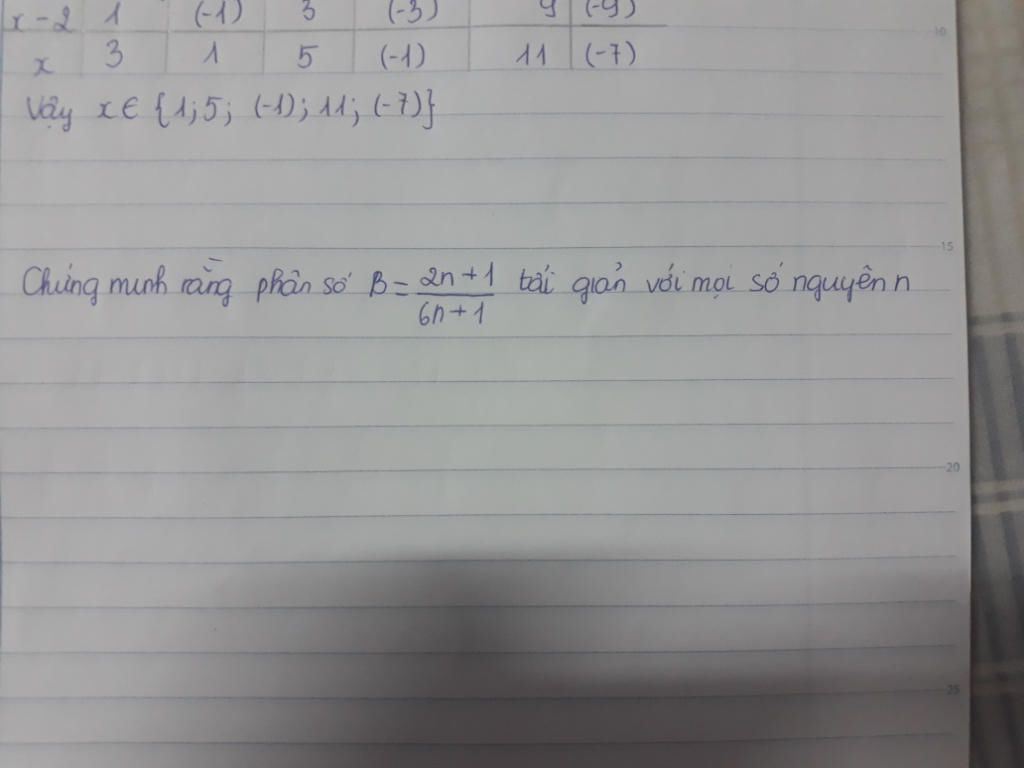 x-2 1 (-1) 3 (-3) 9 (-9)
x 3 1 5 (-1) 11 (-7)
Vậy x ∈ {1; 5; (-1); 11; (-7)}
10
15
Chứng minh rằng phân số B = \frac{2n+1}{6n+1} tối giản với mọi số nguyên n
20
25